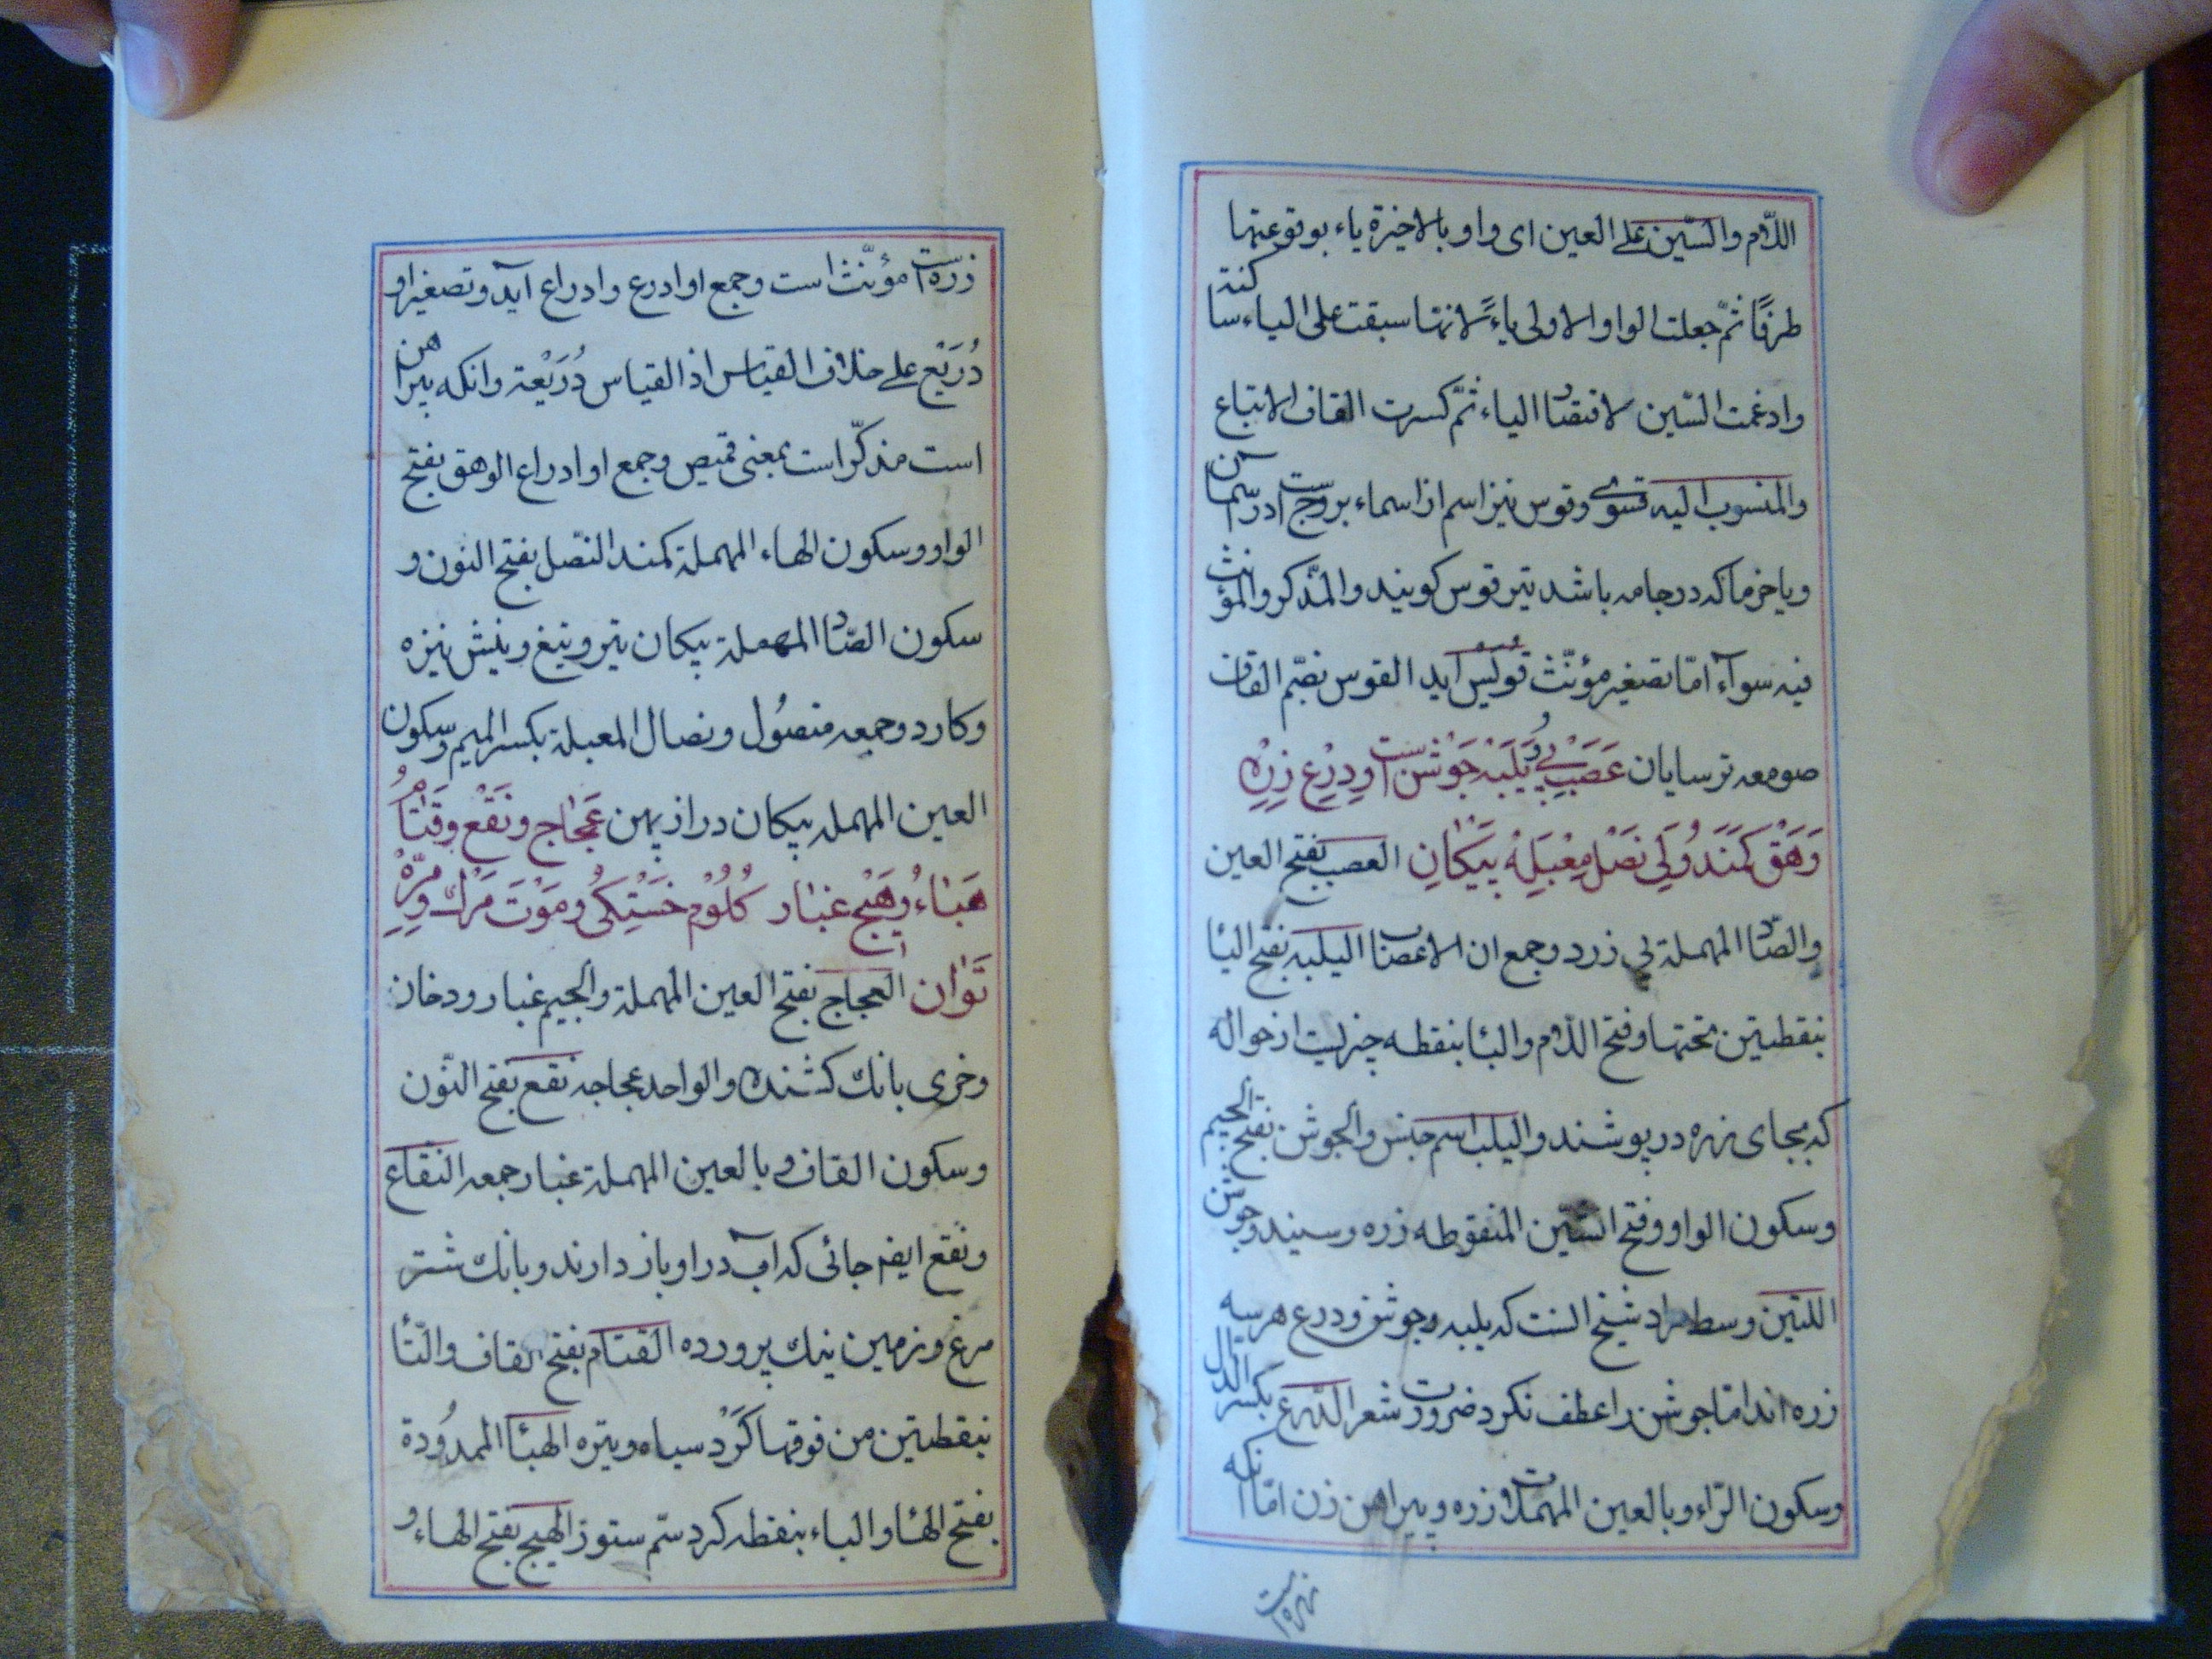 اللّام والسّین علی العین ای واو بالاخیرة یاء بوقوعها
طرفًا ثمّ جعلت الواو الاولی یاءً لانها سبقت علی الیاء ساکنة
وادغمت السّین لاقتضا الیاء ثمّ کسرت القاف لاتباع
والمنسوب الیه قسویّ وقوس نیز اسم از اسماء بروجست در آسمان
ویا خرما که در جامه باشد تیر قوس کویند والمذکر والمؤنث
فیه سوآء امّا تصغیر مؤنّث قویس آید القوس بضّم القاف
صومعه ترسایان عَصَب پی ویَلَبَه جَوْشَن است ودِرْع زِرِه
وَهَق کَمَنْد ولی نَصْل مِعْبَلِه پَیْکان العصب بفتح العین
والصّاد المهملة پی زرد وجمع ان الاعصاب الیلبه بفتح الیا
بنقطتین تحتها وفتح اللّام والبا بنقطه چیزیست از حواله
که بجای زره در پوشند والیلب اسم جنس والجوشن بفتح الجیم
وسکون الواو وفتح الشین المنقوطه زره وسینه وجوشن
اللّتین وسط مراد شیخ انست که یلبه وجوشن ودرع هر سه
زره اند امّا جوشن را عطف نکرد ضرورت شعر الدّرع بکسر الدال
وسکون الرّاء وبالعین المهملات زره وپیراهن زن امّا انکه
زره است
زره است مؤنّث است وجمع او ادرع وادراع آید وتصغیر او
دُرَیْع علی خلاف القیاس اذ القیاس دُرَیْعة وانکه پیراهن
است مذکّر است بمعنی قمیص وجمع او ادراع الوهق بفتح
الواو وسکون الهاء المهملة کمند النّصل بفتح النون و
سکون الصّاد المهملة پیکان تیر وتیغ ونیش نیزه
وکارد وجمعه منصُول ونصال المعبلة بکسر المیم وسکون
العین المهمله پیکان دراز پهن عَجاج ونَقْع وقَتام
هَباءُ وهَیْج غبار کُلُوْم خَسْتِکی ومَوْت مَرْک ومِرّه
تَوان العجاج بفتح العین المهملة والجیم غبار ودخان
وخری بانک کشنده والواحد عجاجه نقع بفتح النّون
وسکون القاف وبالعین المهملة غبار جمعه النقاع
ونقع ایضا جائی که آب در او باز دارند وبانک شتر
مرغ وزمین نیک پرورده القتام بفتح القاف والتّا
بنقطتین من فوقها کَرْد سیاه وتیره الهبا الممدُودة
بفتح الها والباء بنقطه کرد سّم ستور الهیج بفتح الهاء و